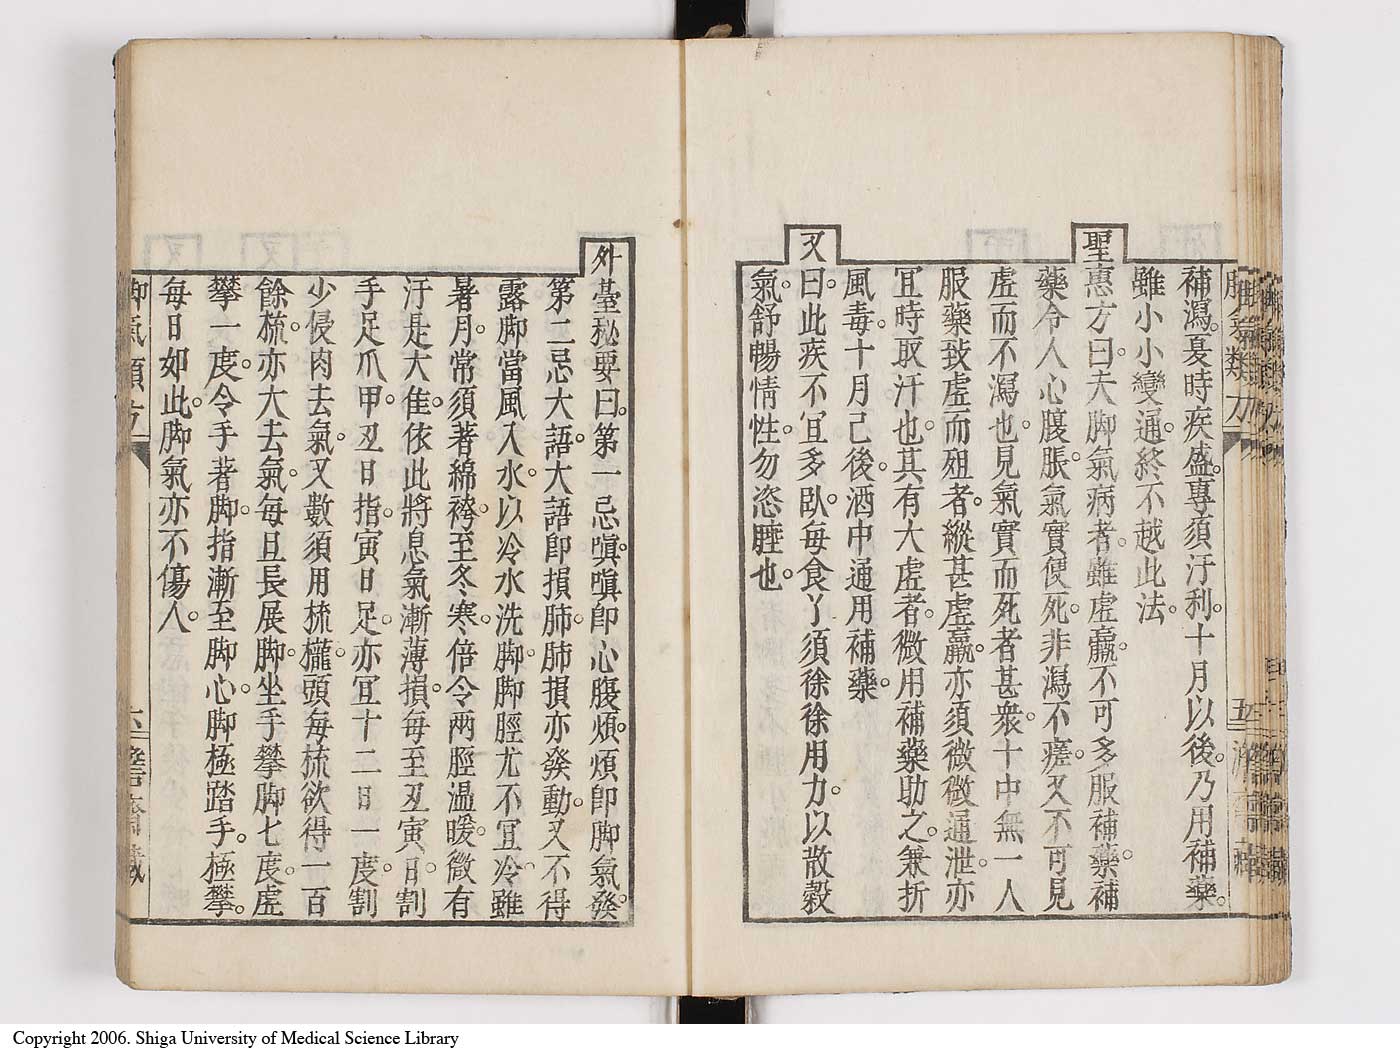 補瀉。夏時疾盛。專須汗利。十月以後。乃用補藥。
雖小小變通。終不越此法。
聖惠方曰。夫脚氣病者。雖虛羸。不可多服補藥。補
藥令人心腹脹。氣實便死。非瀉不瘥。又不可見
虛而不瀉也。見氣實而死者甚衆。十中無一人
服藥致虛而殂者。縱甚虛羸。亦須微微通泄。亦
宜時取汗也。其有大虛者。微用補藥助之。兼折
風毒。十月已後。酒中通用補藥。
又曰。此疾不宜多臥。每食了須徐徐用力。以散穀
氣。舒暢情性。勿恣睡也。
脚氣類方
五
外臺秘要曰。第一忌嗔。嗔即心腹煩。煩即脚氣發。
第二忌大語。大語即損肺。肺損亦發動。又不得
露脚當風入水。以冷水洗脚。脚脛尤不宜冷。雖
暑月。常須著綿袴。至冬寒。倍令兩脛温暖。微有
汗是大佳。依此將息。氣漸薄損。每至丑寅日。割
手足爪甲。丑日指。寅日足。亦宜十二日一度。割
少侵肉去氣。又數須用梳櫳頭。每梳欲得一百
餘梳。亦大去氣。每旦長展脚坐。手攀脚七度。虛
攀一度。令手著脚指。漸至脚心。脚極踏手。極攀。
每日如此。脚氣亦不傷人。
脚氣類方
六